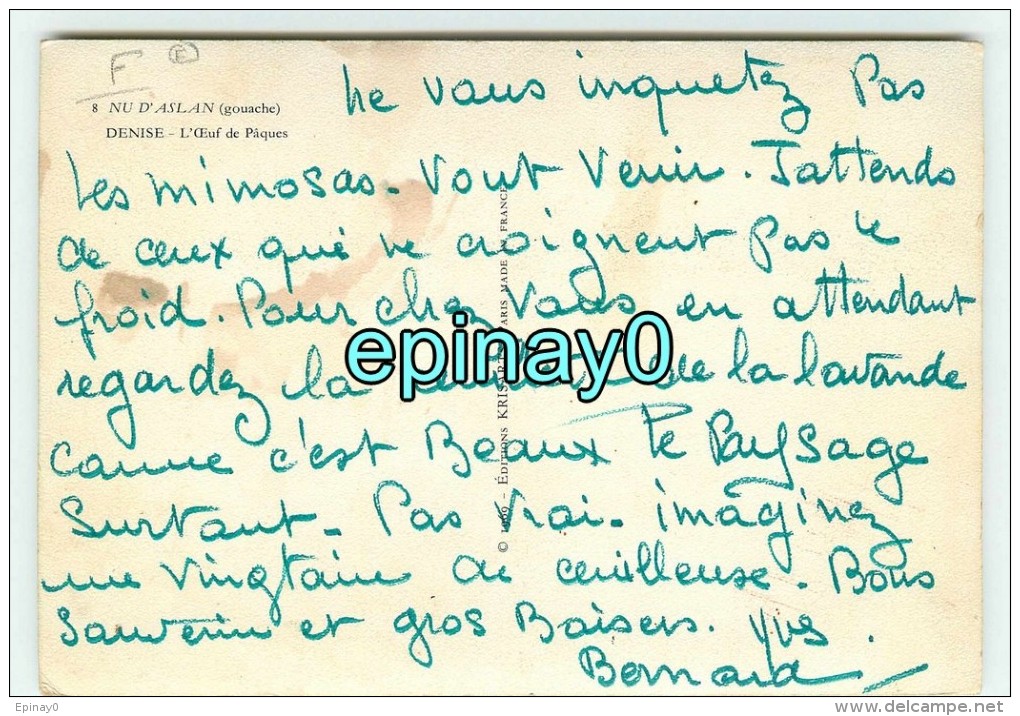 F E
8 NU D'ASLAN (gouache)
DENISE - L'Œuf de Pâques
Ne vous inquetez Pas
Les mimosas - Vont Venir. J'attends
de ceux qui ne craignent pas le
froid. Pour chez Vous en attendant
regardez la de la lavande
comme c'est Beaux le Paysage
Surtout - Pas Vrai - imaginez
une Vingtaine de ceuilleuse. Bons
Souvenir et gros Baisers. Yves
Bernard
© 1969 - ÉDITIONS KRISARTS PARIS MADE IN FRANCE
epinay0
Epinay0
www.delcampe.net